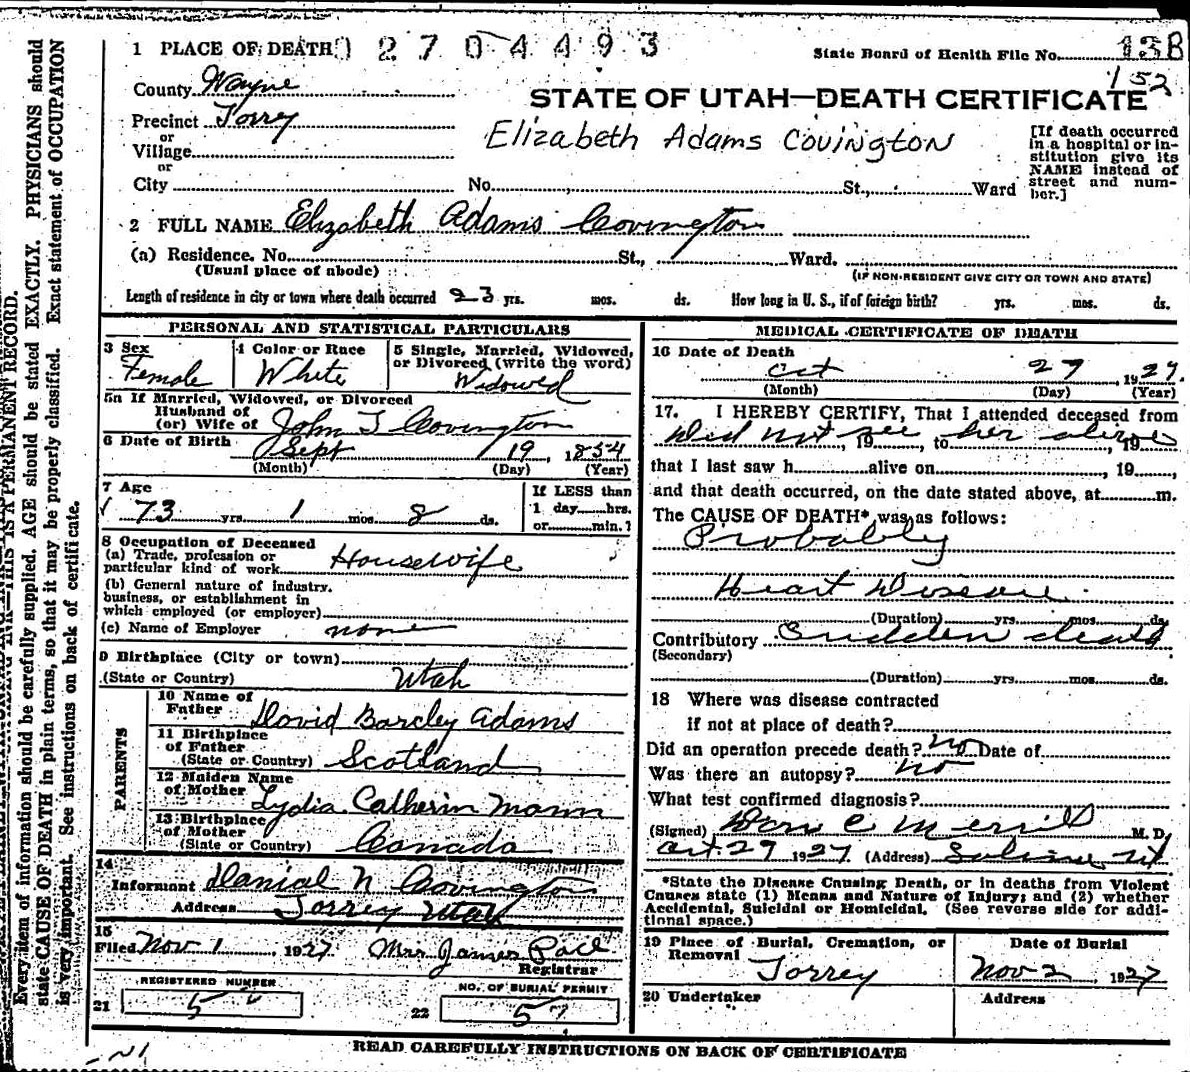 1 PLACE OF DEATH 2704493
State Board of Health File No. 13B
152
County Wayne
STATE OF UTAH—DEATH CERTIFICATE
Precinct Torrey
or
Village
or
City No. St., Ward
Elizabeth Adams Covington
[If death occurred
in a hospital or in-
stitution give its
NAME instead of
street and num-
ber.]
2 FULL NAME Elizabeth Adams Covington
(a) Residence. No. St., Ward.
(Usual place of abode)
(IF NON-RESIDENT GIVE CITY OR TOWN AND STATE)
Length of residence in city or town where death occurred 23 yrs. mos. ds. How long in U. S., if of foreign birth? yrs. mos. ds.
PERSONAL AND STATISTICAL PARTICULARS
3 Sex
Female
4 Color or Race
White
5 Single, Married, Widowed,
or Divorced (write the word)
Widowed
5a If Married, Widowed, or Divorced
Husband of
(or) Wife of John T Covington
6 Date of Birth Sept 19, 1854
(Month) (Day) (Year)
7 Age
73 yrs. 1 mos. 8 ds.
If LESS than
1 day hrs.
or min.?
8 Occupation of Deceased
(a) Trade, profession or
particular kind of work Housewife
(b) General nature of industry,
business, or establishment in
which employed (or employer)
(c) Name of Employer none
9 Birthplace (City or town)
(State or Country) Utah
PARENTS
10 Name of
Father David Barcley Adams
11 Birthplace
of Father
(State or Country) Scotland
12 Maiden Name
of Mother Lydia Catherin Mann
13 Birthplace
of Mother
(State or Country) Canada
14
Informant Danial N Covington
Address Torrey Utah
15
Filed Nov 1 1927 Mrs James Pace
Registrar
REGISTERED NUMBER
21 5
NO. OF BURIAL PERMIT
22 5
MEDICAL CERTIFICATE OF DEATH
16 Date of Death
Oct 27, 1927.
(Month) (Day) (Year)
17. I HEREBY CERTIFY, That I attended deceased from
Did not see her alive 19 , to 19
that I last saw h alive on , 19 ,
and that death occurred, on the date stated above, at m.
The CAUSE OF DEATH* was as follows:
Probably
Heart Disease
(Duration) yrs. mos. ds.
Contributory Sudden death
(Secondary)
(Duration) yrs. mos. ds.
18 Where was disease contracted
if not at place of death?
Did an operation precede death? no Date of
Was there an autopsy? no
What test confirmed diagnosis?
(Signed) Don C Merrill M. D.
Oct. 29 1927. (Address) Salina Ut
*State the Disease Causing Death, or in deaths from Violent
Causes state (1) Means and Nature of Injury; and (2) whether
Accidental, Suicidal or Homicidal. (See reverse side for addi-
tional space.)
19 Place of Burial, Cremation, or
Removal
Torrey
Date of Burial
Nov 2, 1927
20 Undertaker
Address
READ CAREFULLY INSTRUCTIONS ON BACK OF CERTIFICATE
THIS IS A PERMANENT RECORD.
Every item of information should be carefully supplied. AGE should be stated EXACTLY. PHYSICIANS should
state CAUSE OF DEATH in plain terms, so that it may be properly classified. Exact statement of OCCUPATION
is very important. See instructions on back of certificate.